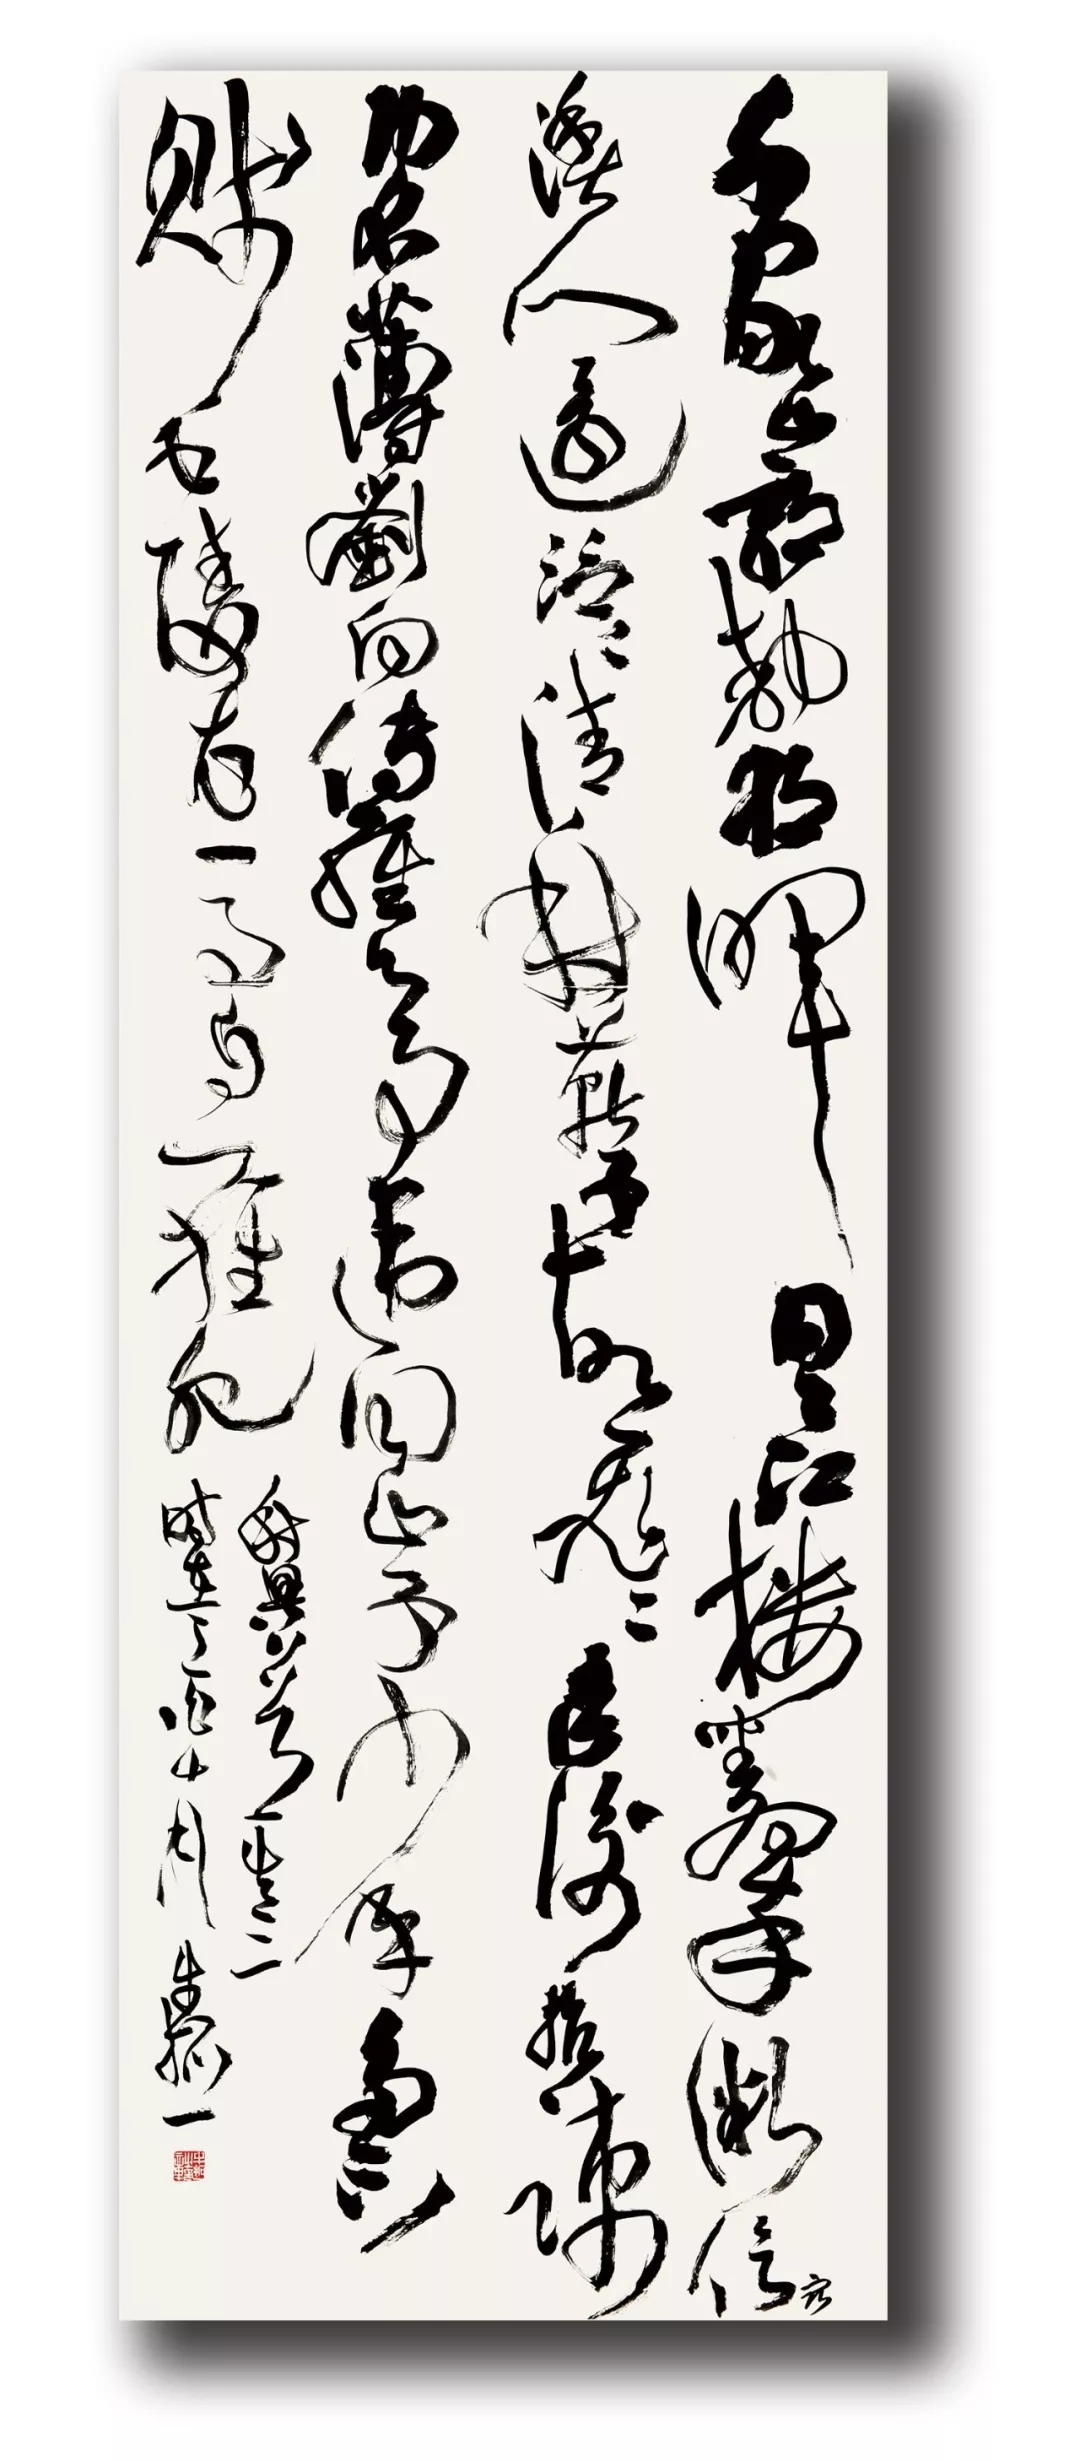 千家山郭静朝暉日日江樓坐翠微信宿
漁人還泛泛清秋燕子故飛飛匡衡抗疏
功名薄劉向傳經心事違同學少年多不
賤五陵衣馬自輕肥
秋興八首
時在丁酉十月